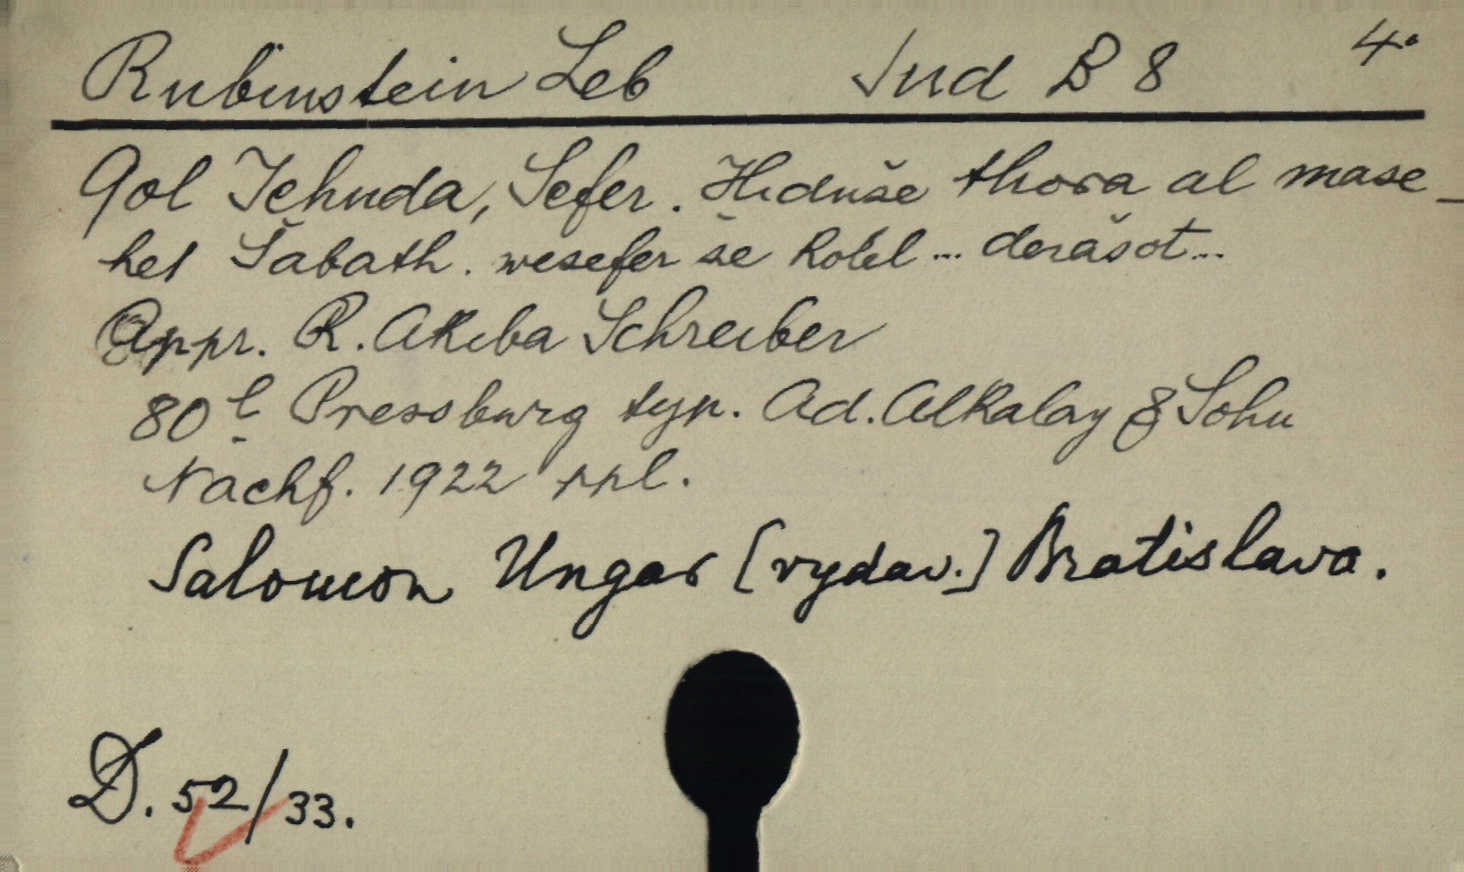 Rubinstein Leb Jud B 8 4°
Qol Jehuda, Sefer. Hiduše thora al mase-
het Šabath. wesefer še kolel... derašot...
Appr. R. Akiba Schreiber
80 l Pressburg typ. Ad. Alkalay & Sohn
Nachf. 1922 ppl.
Salomon Ungar [vydav.] Bratislava.
D. 52/33.